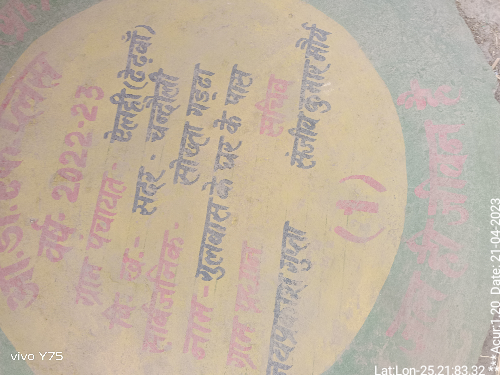 वर्ष- 2022-23
ग्राम पंचायत:- ऐलही (ढेढवाँ)
वि. खं.:- सदर- चन्दौली
सार्वजनिक- सोख्ता गड्ढा
नाम- गुलबास के घर के पास
ग्राम प्रधान सचिव
जयप्रकाश गुप्ता संजीव कुमार मौर्य
(1)
जल ही जीवन है
vivo Y75
Lat:Lon-25.21:83.32
***Acur:1.20 Date: 21-04-2023